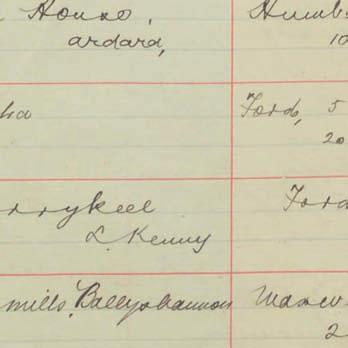 House, Humb
Ardara, 10
Ford, 5
20
rrykeel Ford
L. Kenny
mills, Ballyshannon Maxw
2